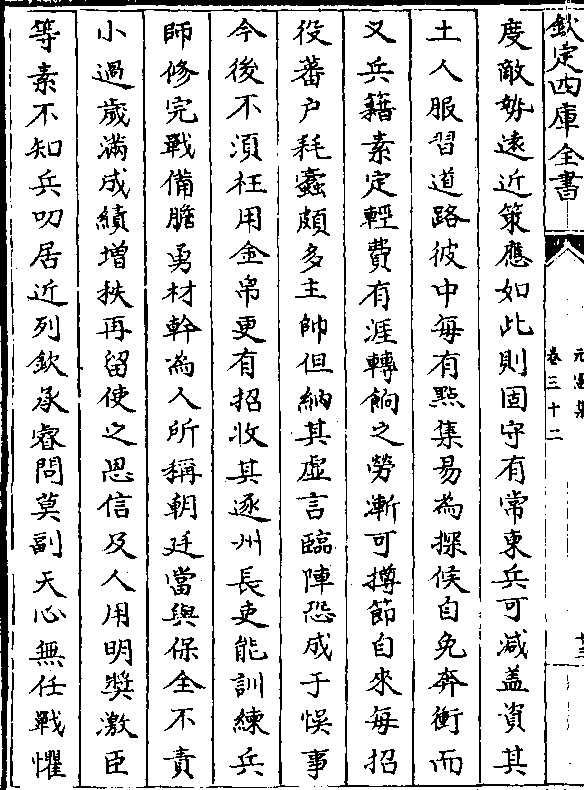 欽定四庫全書
卷三十二
度敵勢遠近策應如此則固守有常東兵可減盖資其
土人服習道路彼中每有㸃集易為探候自免奔衝而
又兵籍素定輕費有涯轉餉之勞漸可撙節自來每招
役蕃户耗蠧頗多主帥但納其虚言臨陣恐成于悞事
今後不須枉用金帛更有招收其逐州長吏能訓練兵
師修完戰備膽勇材幹為人所稱朝廷當與保全不責
小過歲滿成績增秩再留使之恩信及人用明奬激臣
等素不知兵叨居近列欽承睿問莫副天心無任戰懼